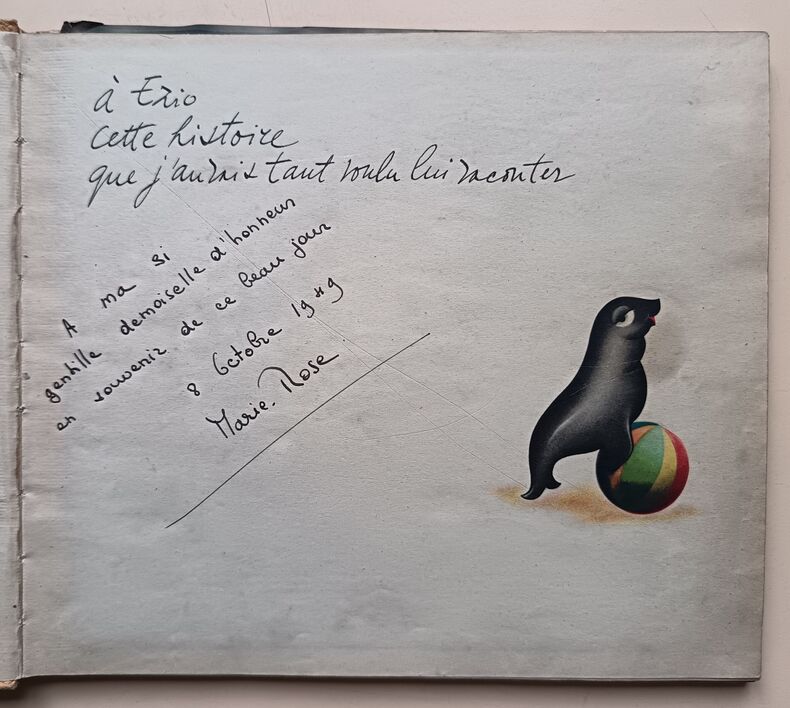 à Ezio
cette histoire
que j'aurais tant voulu lui raconter
A ma si
gentille demoiselle d'honneur
en souvenir de ce beau jour
8 Octobre 1949
Marie-Rose